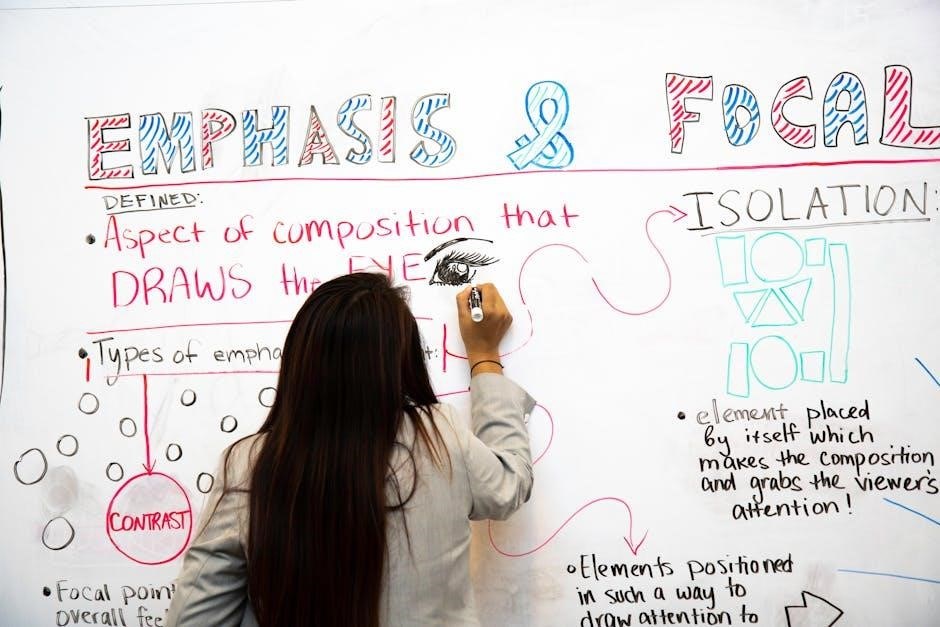 EMPHASIS & FOCAL
DEFINED:
• Aspect of composition that
DRAWS the EYE
• Types of
CONTRAST
• Focal
overall
ISOLATION:
• element placed
by itself which
makes the composition
and grabs the viewer's
attention!
• Elements positioned
in such a way to
draw attention to